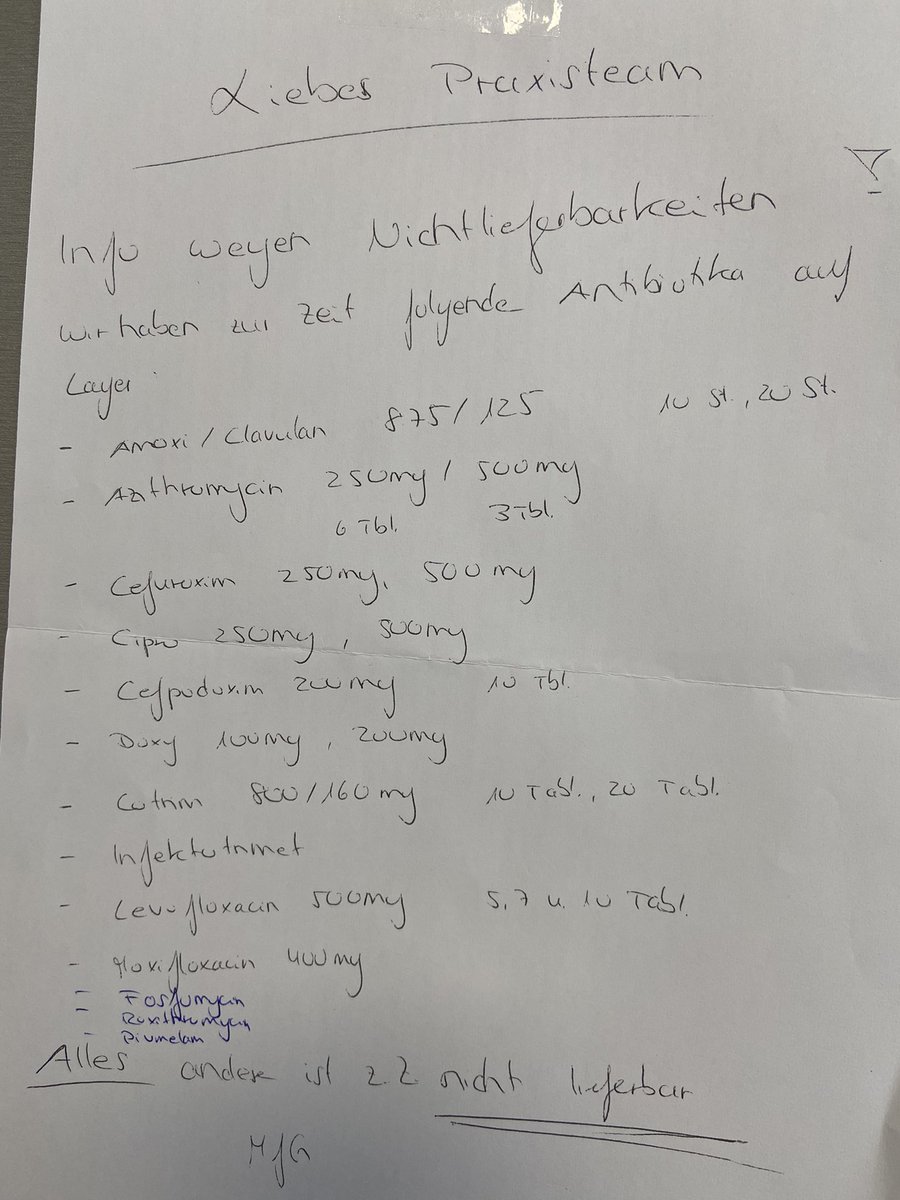 Liebes Praxisteam
Info wegen Nichtlieferbarkeiten
wir haben zur Zeit folgende Antibiotika auf
Lager
- Amoxi / Clavulan 875 / 125 10 St., 20 St.
- Azithromycin 250mg / 500mg
6 Tbl. 3 Tbl.
- Cefuroxim 250mg, 500mg
- Cipro 250mg, 500mg
- Cefpodoxim 200mg 10 Tbl.
- Doxy 100mg, 200mg
- Cotrim 800/160mg 10 Tabl., 20 Tabl.
- Infektotrimet
- Levofloxacin 500mg 5, 7 u. 10 Tabl.
- Moxifloxacin 400mg
- Fosfomycin
- Roxithromycin
- Pivmelam
Alles andere ist z.Z. nicht lieferbar
MfG